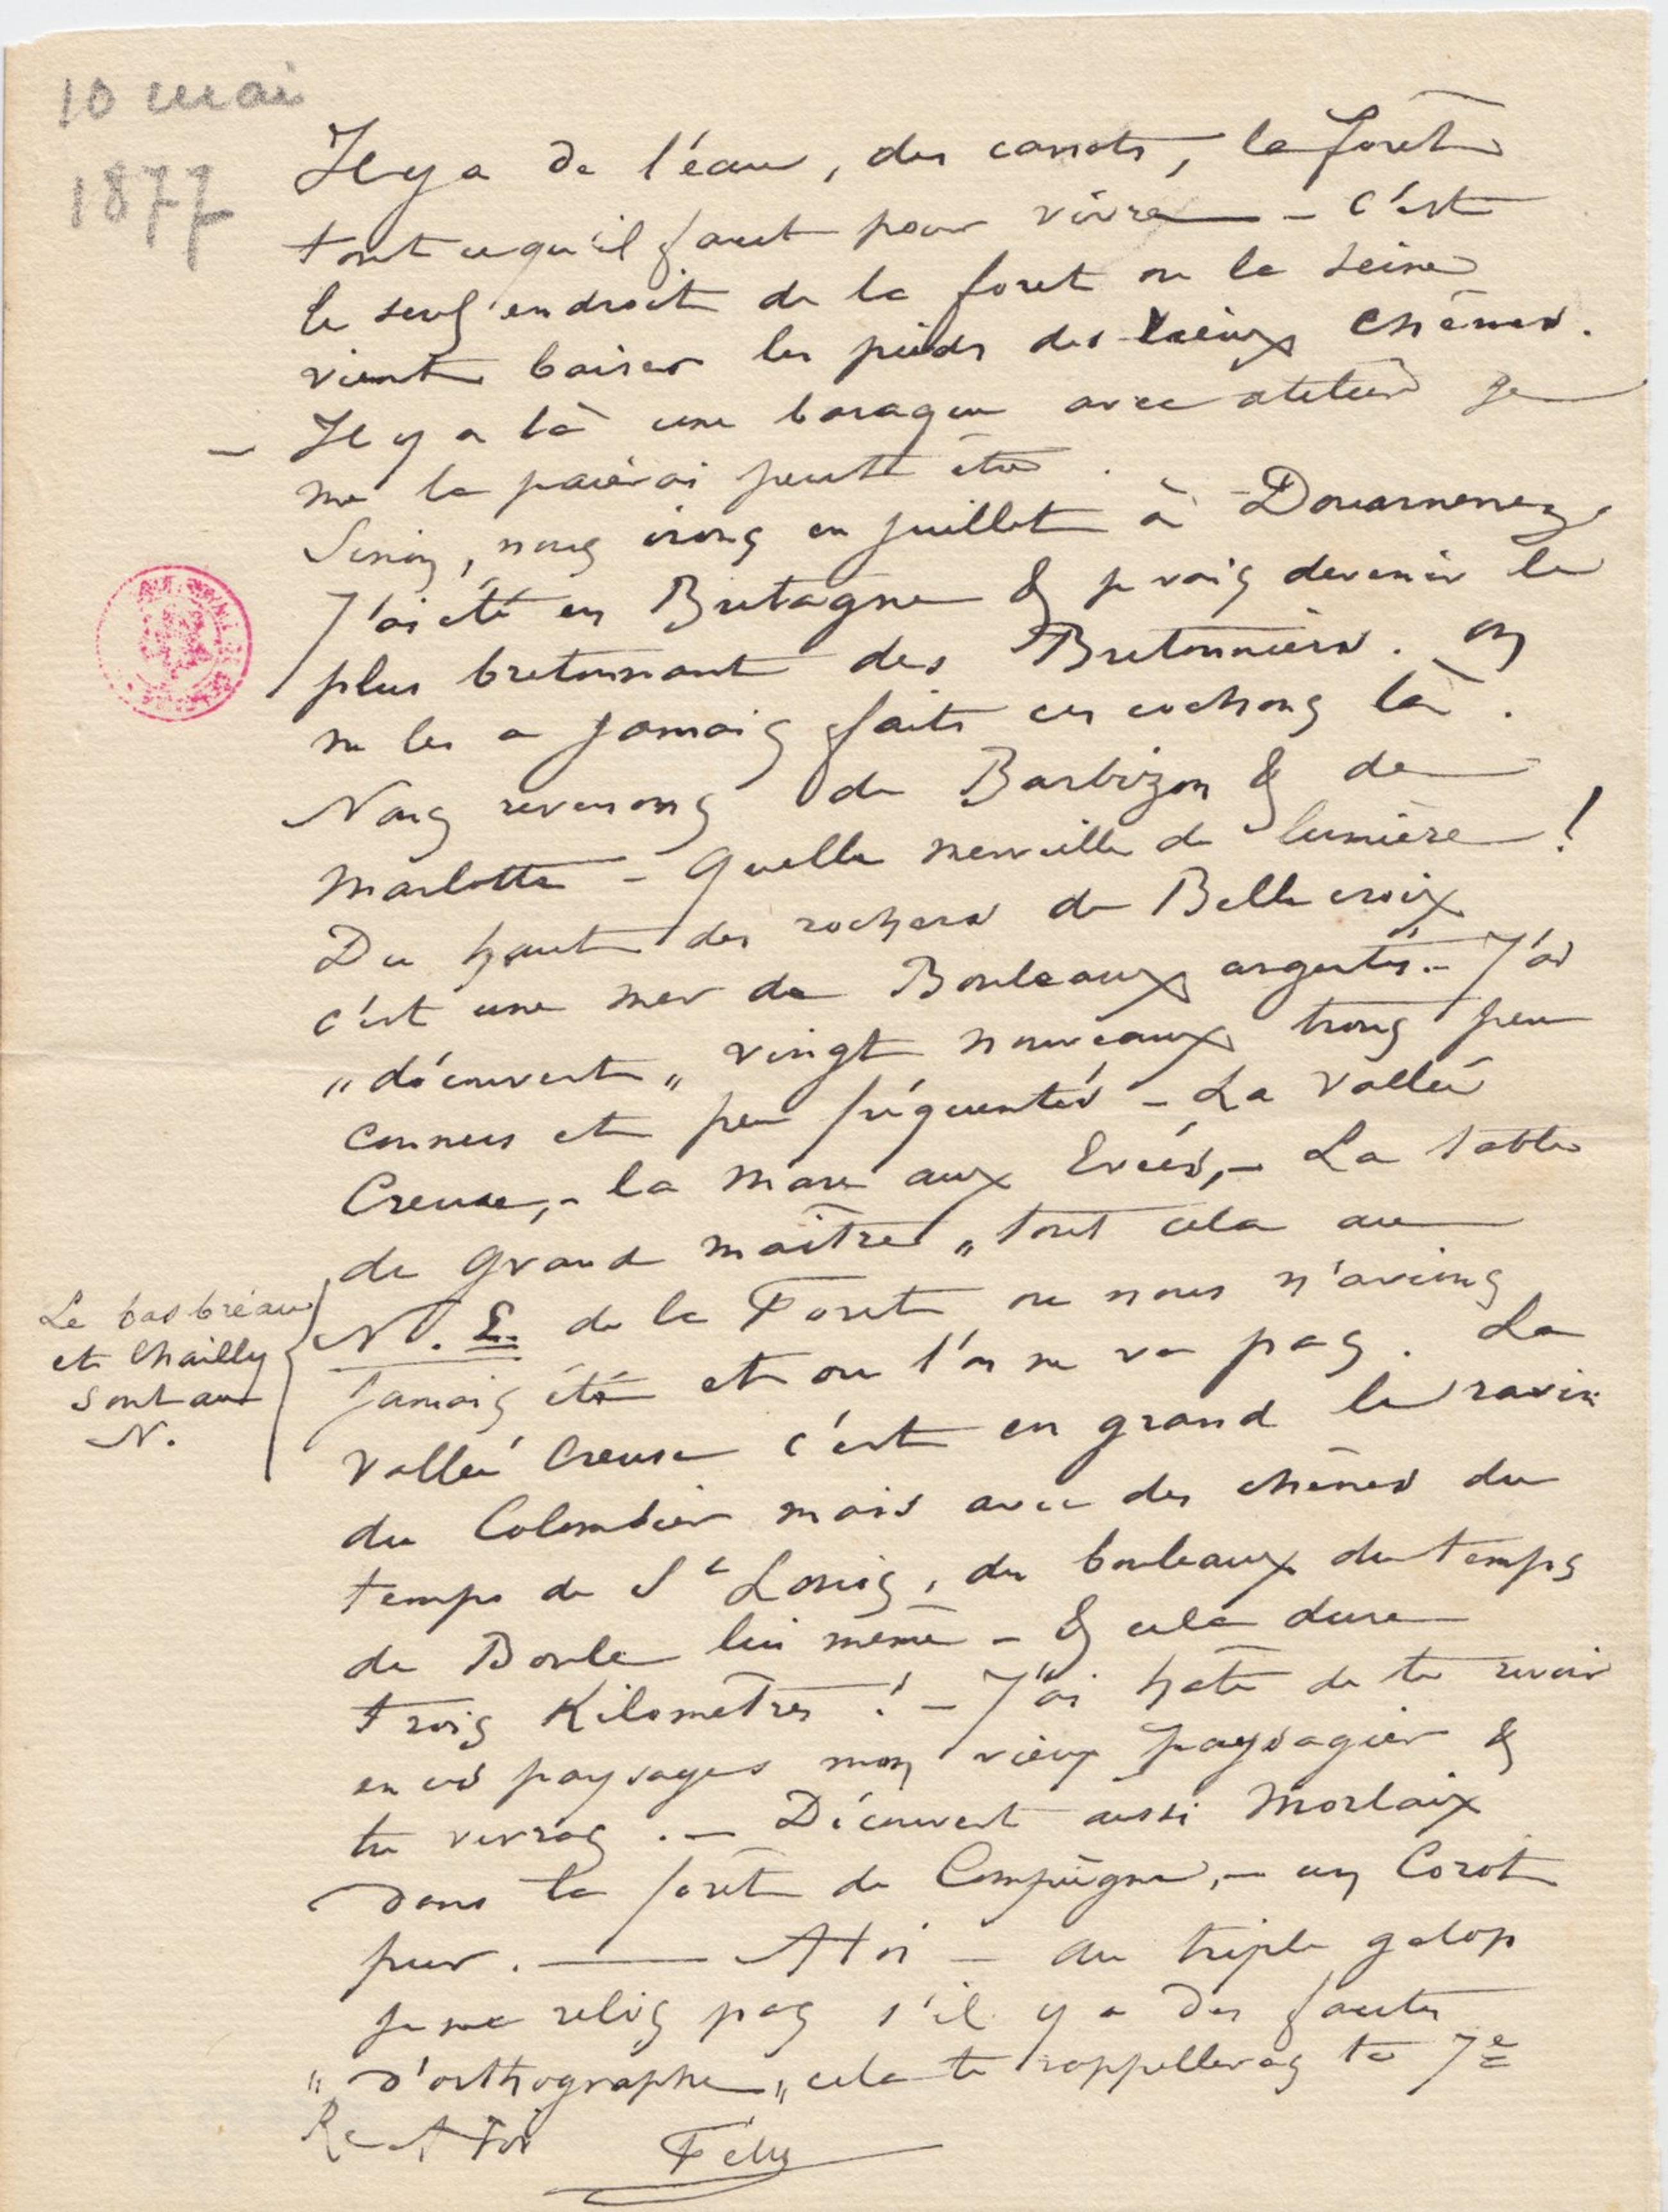 10 mai
1877
Il y a de l'eau, des canots, la forêt
tout ce qu'il faut pour vivre — c'est
le seul endroit de la foret ou la Seine
vient baiser les pieds des vieux chênes.
— Il y a là une baraque avec atelier je
me la paierai peut être.
Sinon, nous irons en juillet à Douarnenez
J'ai été en Bretagne & je vais devenir le
plus bretonnant des Bretonniers. On
ne les a jamais faits ces cochons là.
Nous revenons de Barbizon & de
Marlotte — Quelle merveille de lumière!
Du haut des rochers de Bellecroix
c'est une mer de Bouleaux argentés. — J'ai
"découvert" vingt nouveaux trous peu
connus et peu fréquentés — La Vallée
Creuse, — la Mare aux Evées, — La Table
du Grand Maître, tout cela au
N. E. de la Foret ou nous n'avions
jamais été et ou l'on ne va pas. La
Vallée Creuse c'est en grand le ravin
du Colombier mais avec des chênes du
temps de St Louis, des bouleaux du temps
de Boule lui même — & cela dure
trois Kilomètres! — J'ai hâte de te revoir
en ces paysages mon vieux paysagier &
tu verras. — Découvert aussi Morlaix
dans la forêt de Compiègne, — un Corot
pur. — A toi — au triple galop
je ne relis pas s'il y a des fautes
"d'orthographe" cela te rappelleras ta 7e
Re A Toi Fély
Le bas bréau
et Chailly
sont au
N.